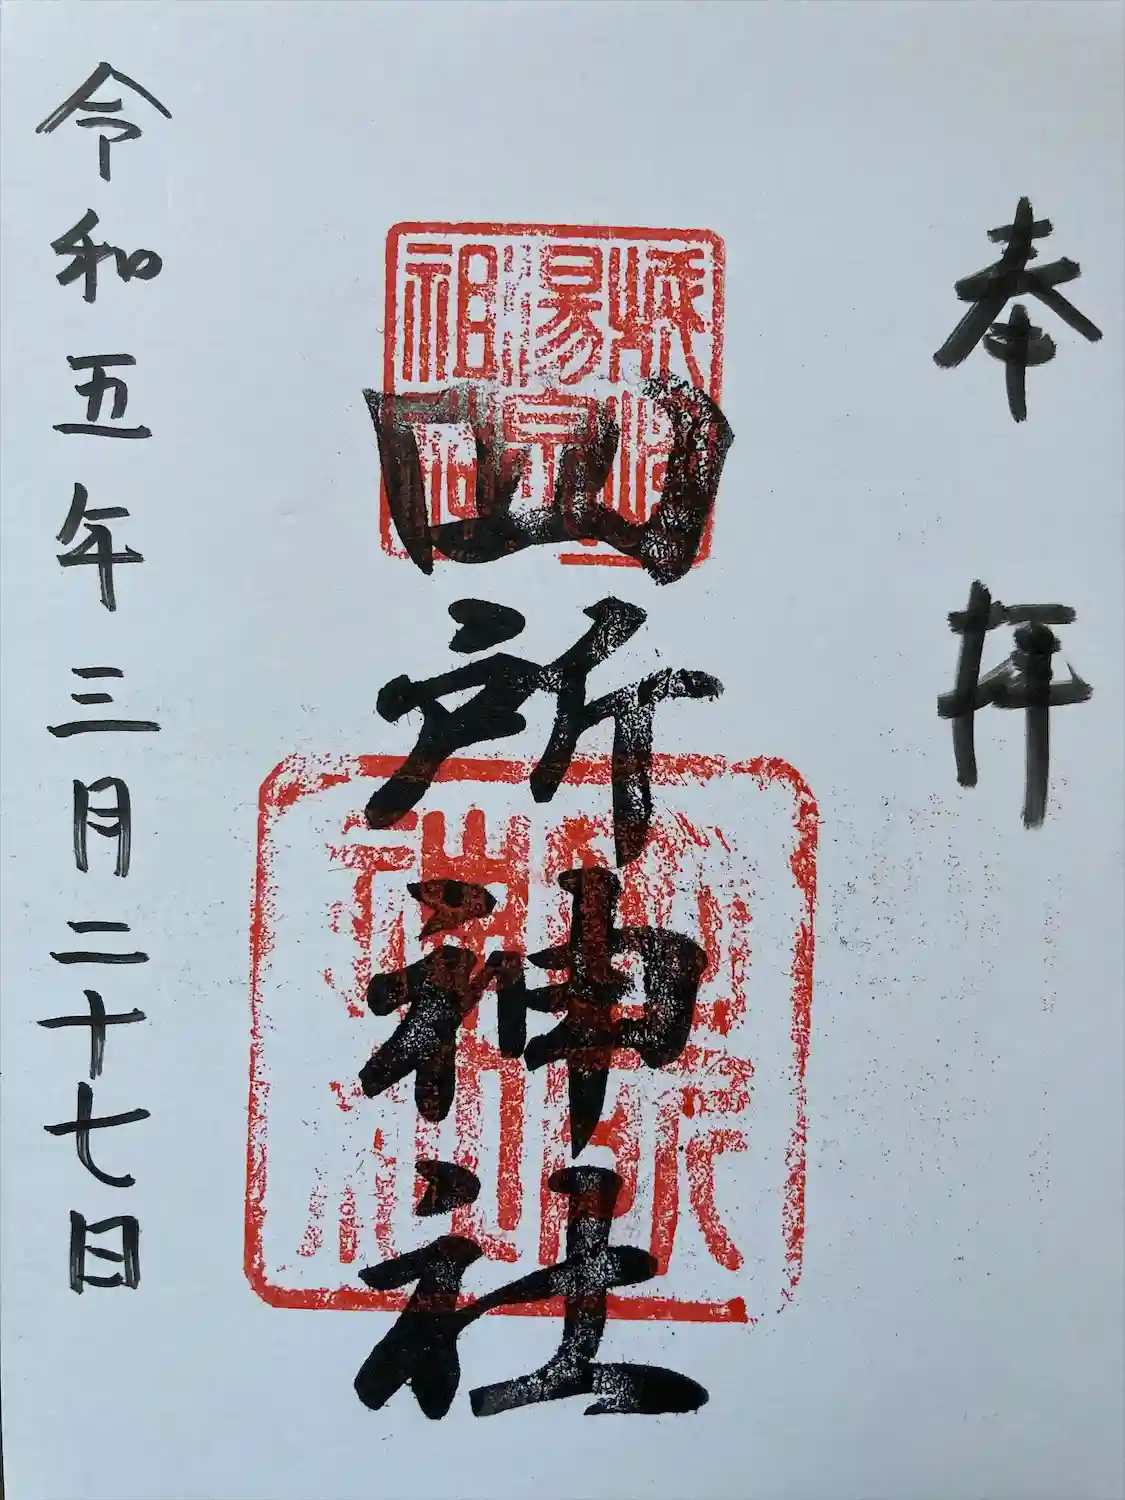 奉拝
四所神社
令和五年三月二十七日